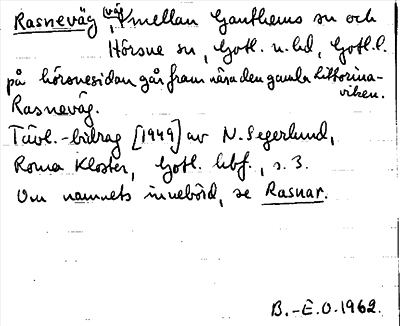 Rasneväg, väg mellan Ganthems sn och
Hörsne sn, Gotl. n. hd, Gotl. l.
på hörsnesidan går fram nära den gamla littorina-
viken.
Rasneväg.
Tävl.-bidrag [1949] av N. Segerlund,
Roma Kloster, Gotl. hbf., s. 3.
Om namnets innebörd, se Rasnar.
B.-E.O. 1962.